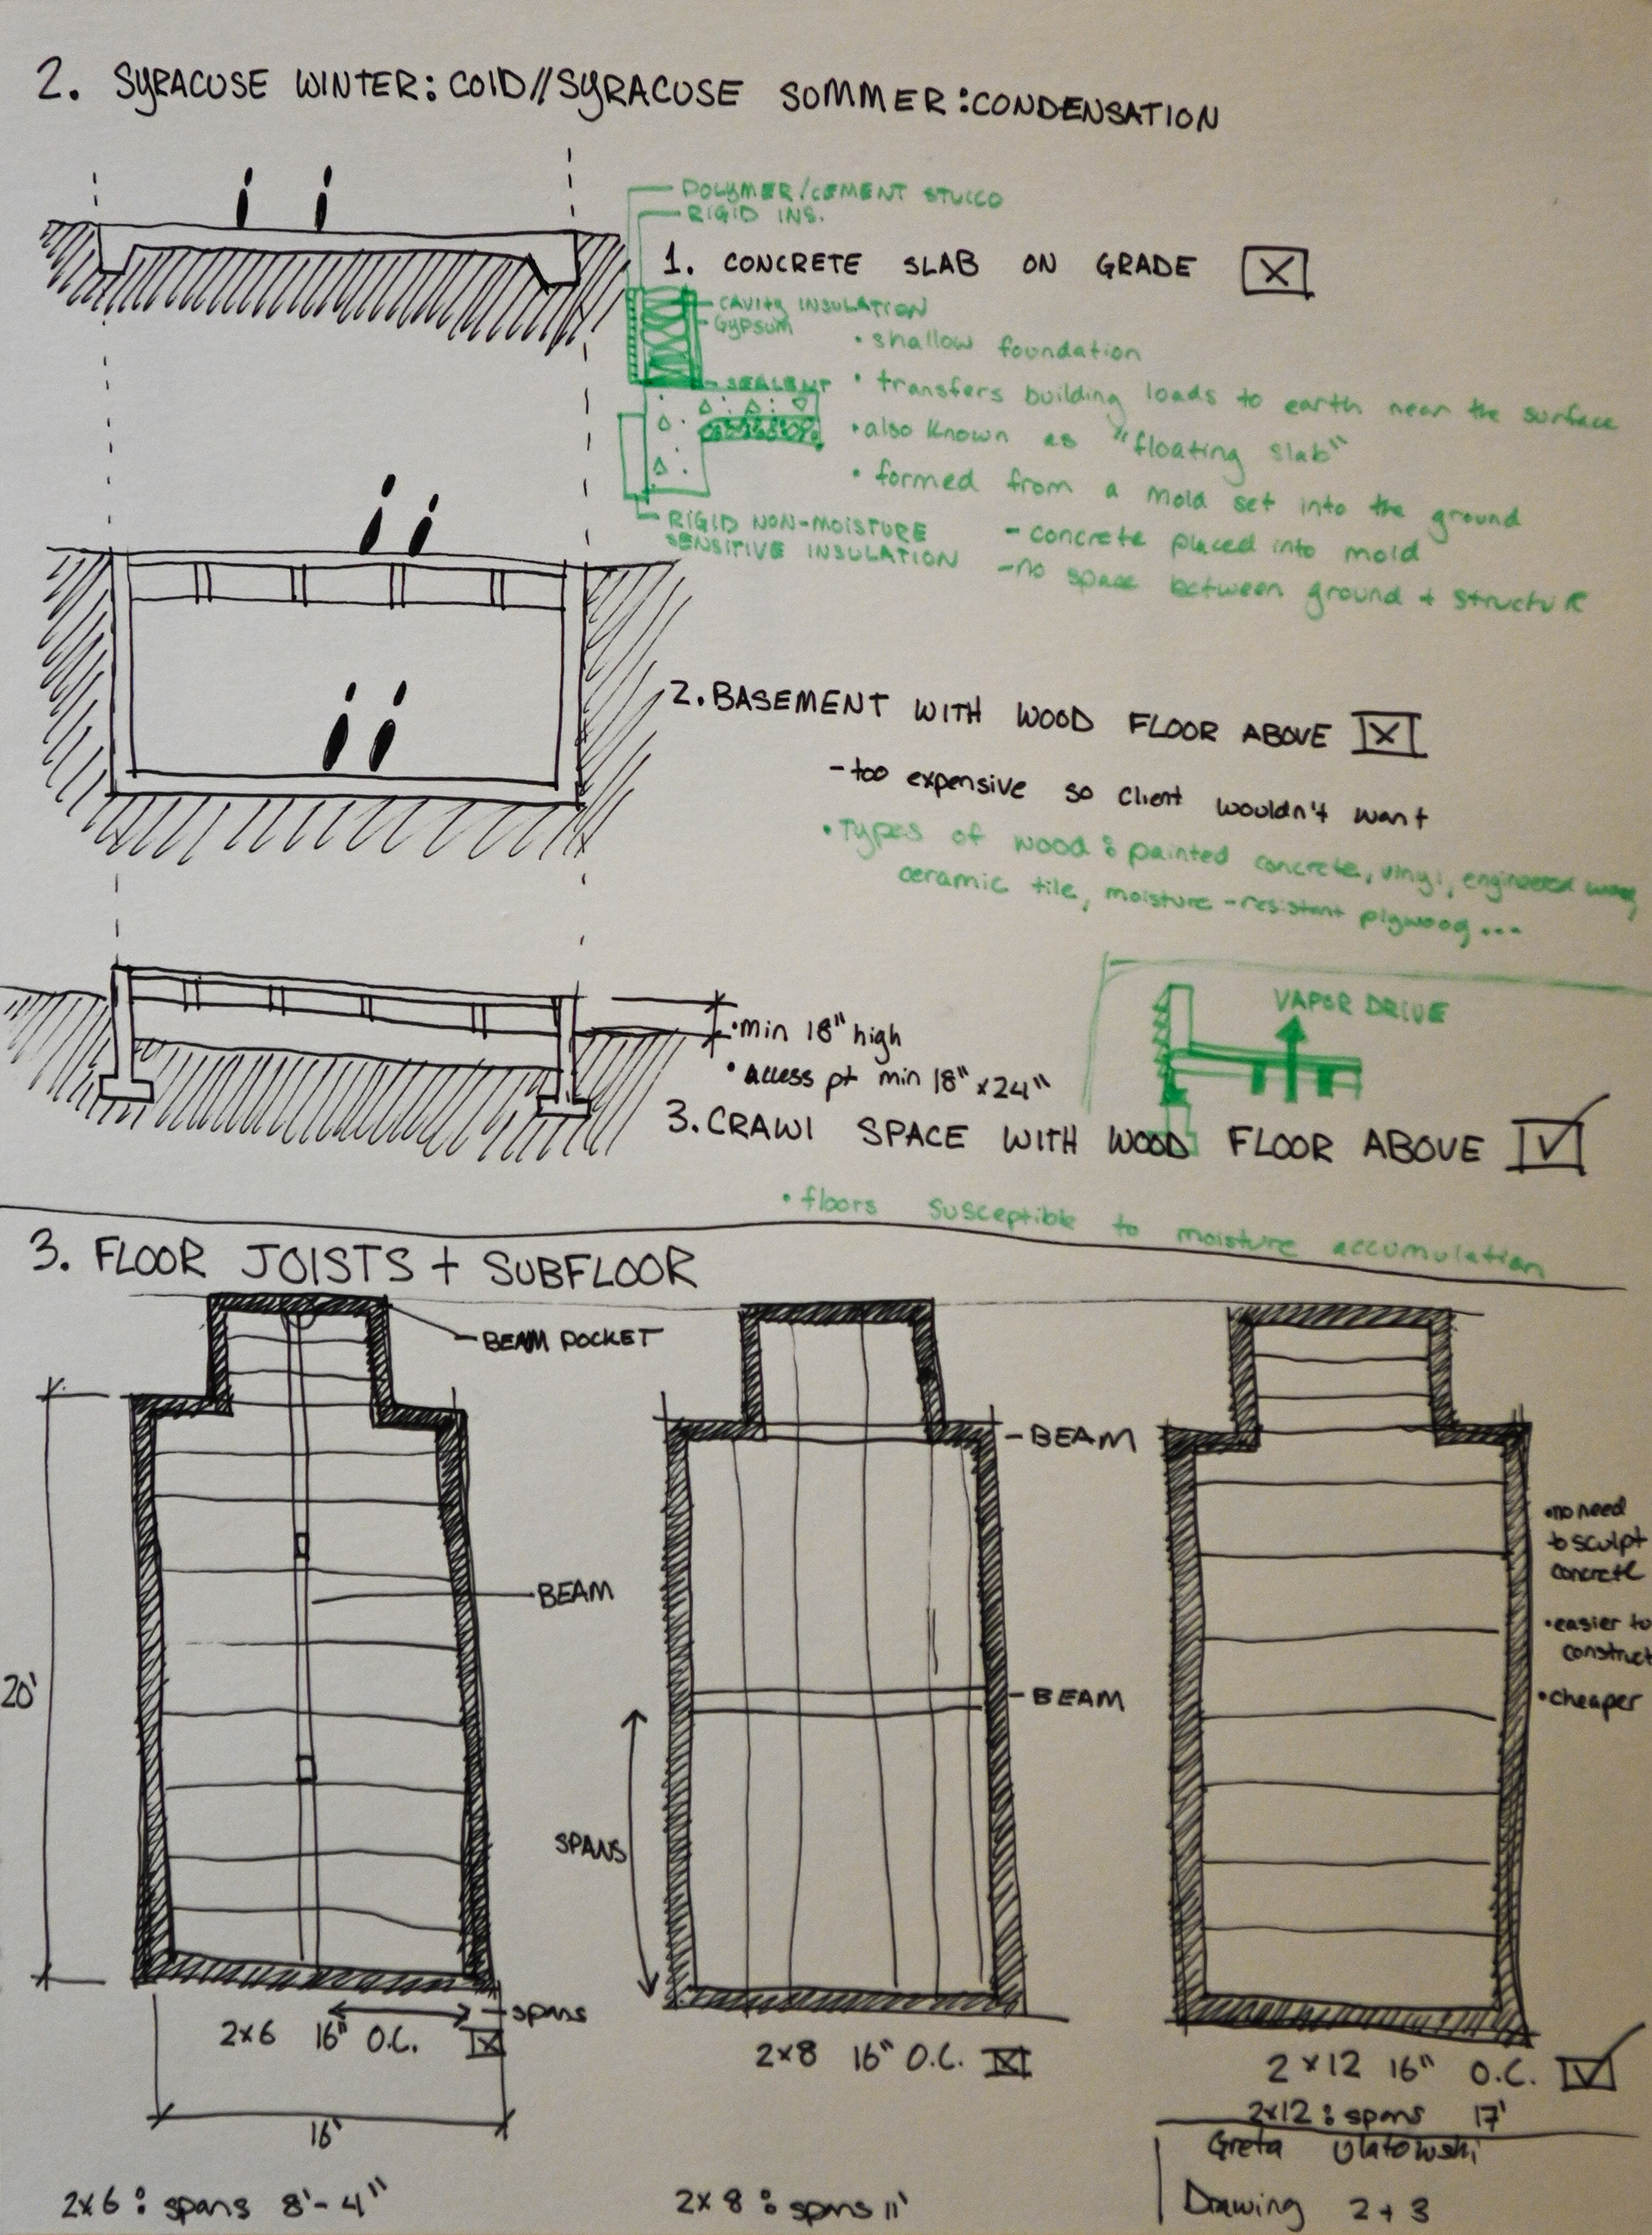 2. SYRACUSE WINTER: COlD//SYRACUSE SOMMER: CONDENSATION
POLYMER/CEMENT STUCCO
RIGID INS.
1. CONCRETE SLAB ON GRADE
CAVITY INSULATION
GYPSUM
• shallow foundation
SEALENT
• transfers building loads to earth near the surface
• also known as "floating slab"
• formed from a mold set into the ground
RIGID NON-MOISTURE
SENSITIVE INSULATION
- concrete placed into mold
- no space between ground + structure
2. BASEMENT WITH WOOD FLOOR ABOVE
- too expensive so client wouldn't want
• Types of wood: painted concrete, vinyl, engineered wood,
ceramic tile, moisture-resistant plywood...
VAPOR DRIVE
• min 18" high
• access pt min 18" x 24"
3. CRAWl SPACE WITH WOOD FLOOR ABOVE
• floors susceptible to moisture accumulation
3. FLOOR JOISTS + SUBFLOOR
BEAM POCKET
BEAM
BEAM
BEAM
20'
SPANS
• no need
to sculpt
concrete
• easier to
construct
• cheaper
spans
2x6 16" O.C.
16'
2x6: spans 8'-4"
2x8 16" O.C.
2x8: spans 11'
2x12 16" O.C.
2x12: spans 17'
Greta Ulatowski
Drawing 2+3